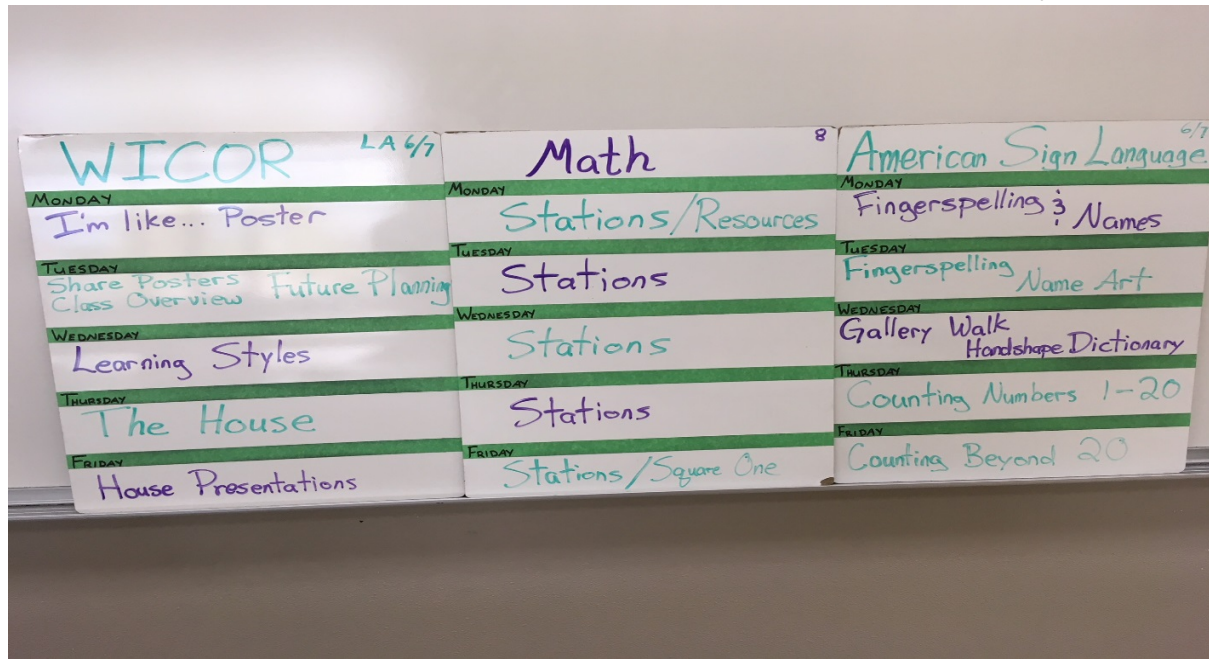 WICOR LA 6/7
MONDAY
I'm like... Poster
TUESDAY
Share Posters Future Planning
Class Overview
WEDNESDAY
Learning Styles
THURSDAY
The House
FRIDAY
House Presentations
Math 8
MONDAY
Stations/Resources
TUESDAY
Stations
WEDNESDAY
Stations
THURSDAY
Stations
FRIDAY
Stations/Square One
6/7
American Sign Language
MONDAY
Fingerspelling &
Names
TUESDAY
Fingerspelling
Name Art
WEDNESDAY
Gallery Walk
Handshape Dictionary
THURSDAY
Counting Numbers 1-20
FRIDAY
Counting Beyond 20